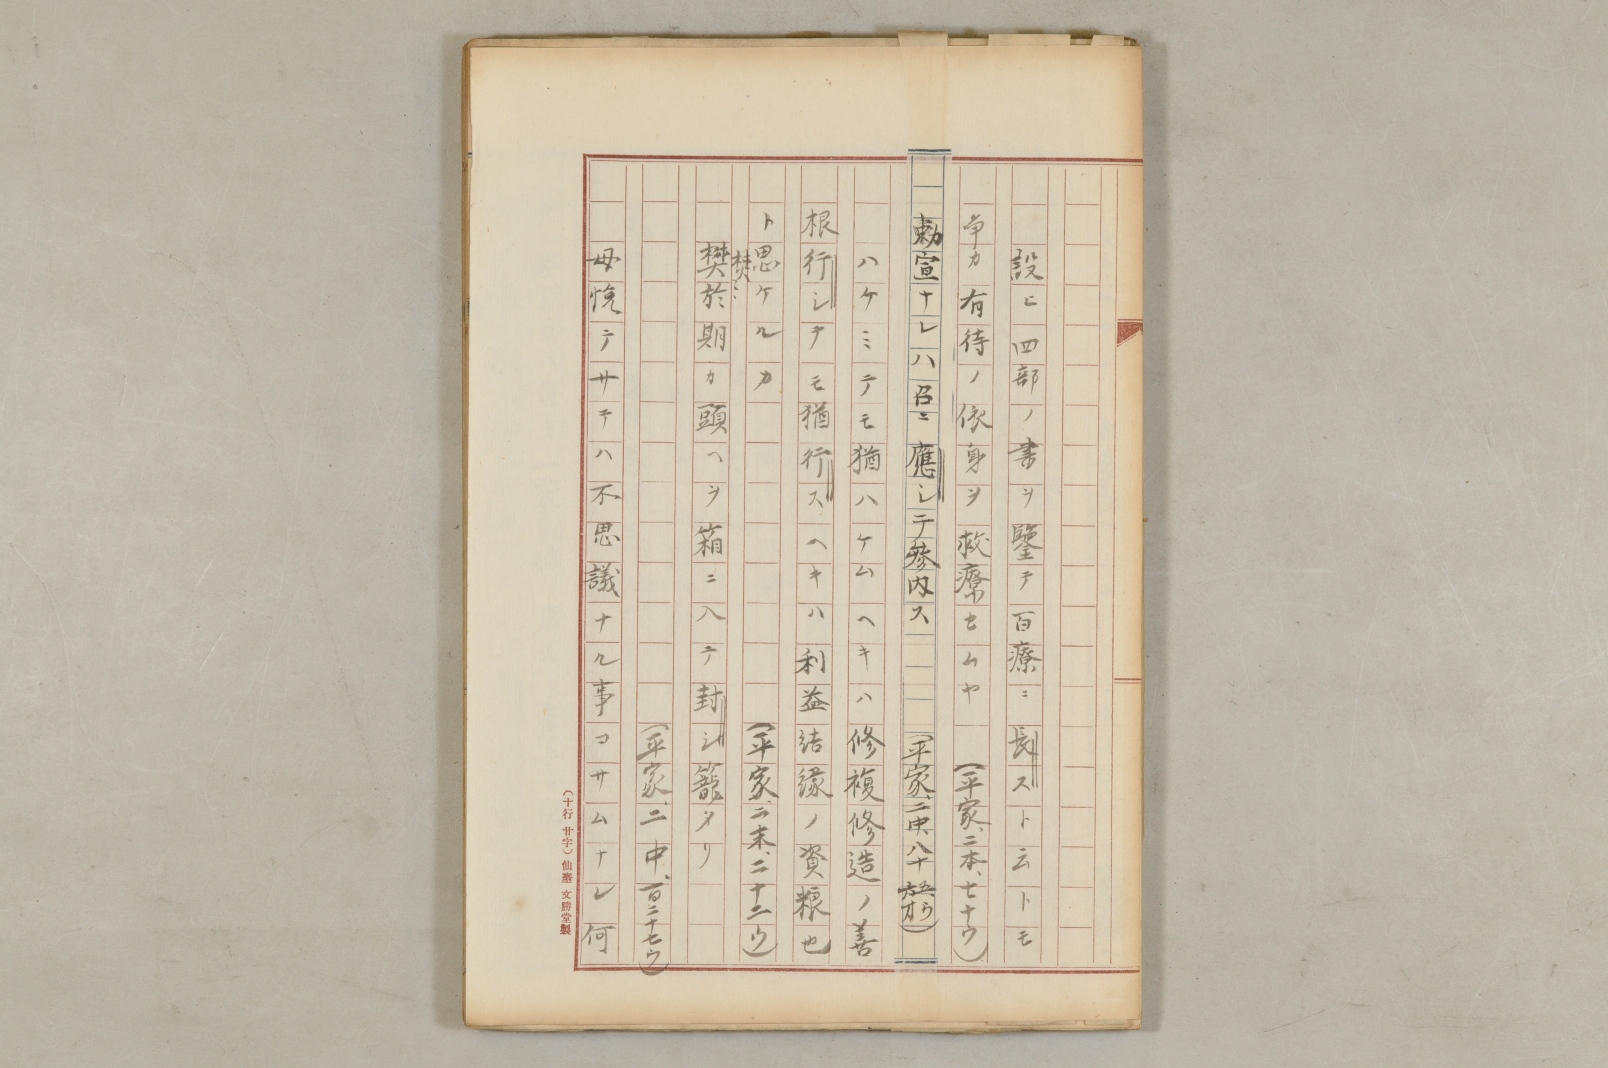 設ヒ四部ノ書ヲ鑒テ百療ニ長スト云トモ
争カ有待ノ依身ヲ救療セムヤ (平家、二本、七十ウ)
勅宣ナレハ召ニ應シテ參内ス (平家、二中、八十
ハケミテモ猶ハケムヘキハ修複修造ノ善
根行シテモ猶行スヘキハ利益結縁ノ資粮也
ト思ケルカ (平家、二末、二十二ウ)
樊於期カ頭ヘヲ箱ニ入テ封シ籠タリ
樊ミ
(平家、二中、百二十七ウ)
母悦テサテハ不思議ナル事コサムナレ何
(十行 廿字) 仙臺 文勝堂製